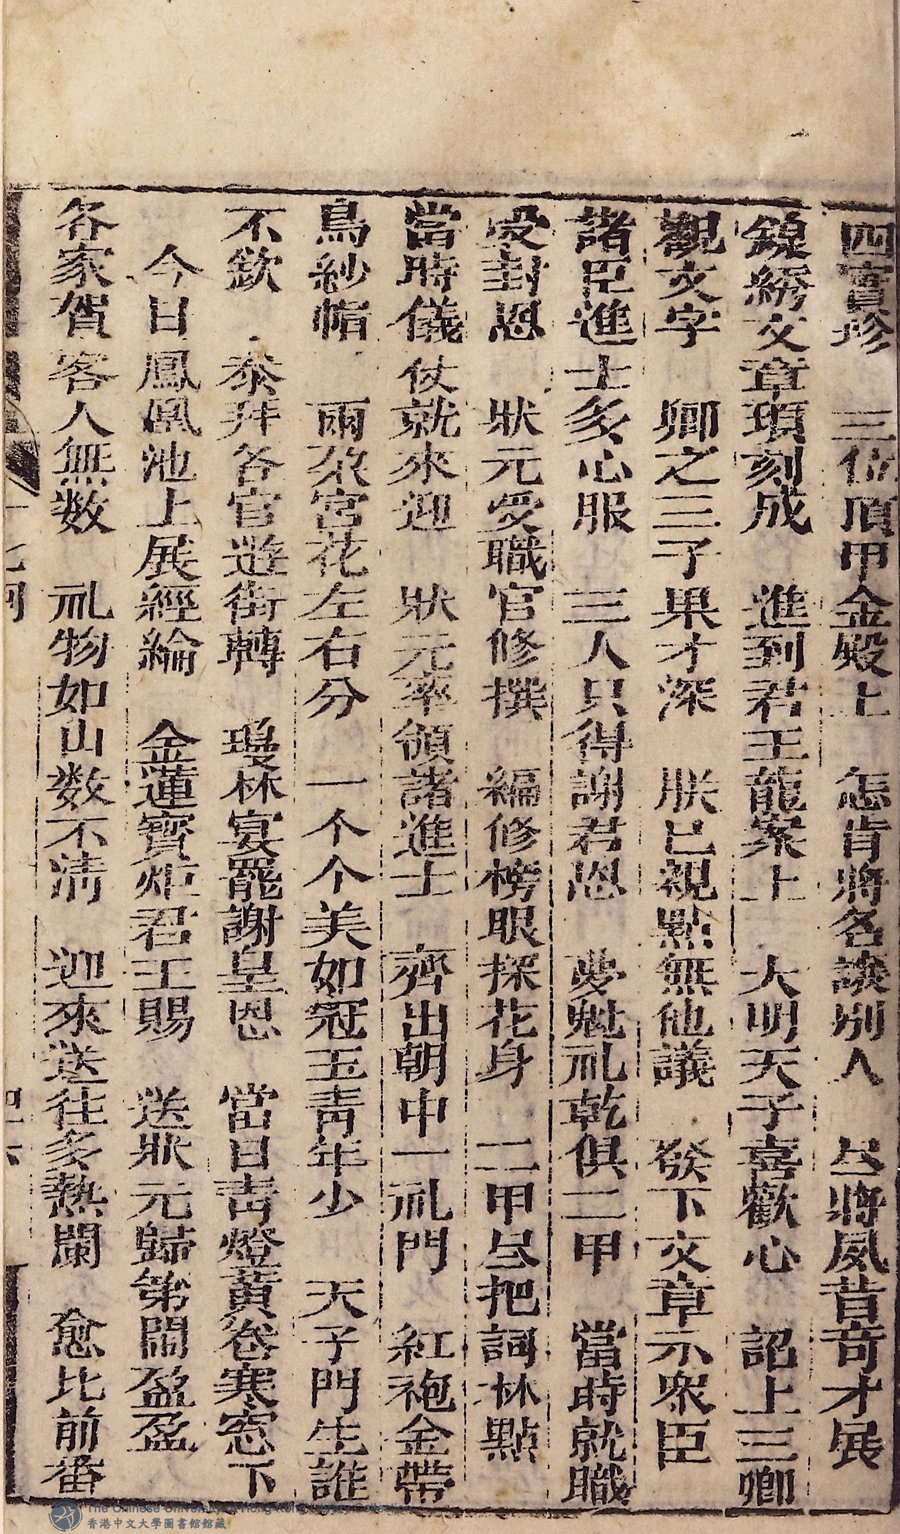 四寶珍　三位頂甲金殿上　怎肯將名談別人　尽將夙昔奇才展
錦綉文章頃刻成　進到君王龍案上　大明天子喜歡心　詔上三卿
觀文字　卿之三子果才深　朕已親點無他議　發下文章示衆臣
諸臣進士多心服　三人只得謝君恩　夢魁礼乾俱二甲　當時就職
受封恩　狀元受職官修撰　編修榜眼探花身　二甲尽把詞林點
當時儀仗就來迎　狀元率領諸進士　齊出朝中一礼門　紅袍金帶
烏紗帽　兩朶宮花左右分　一个个美如冠玉靑年少　天子門生誰
不欽　泰拜各官遊街轉　瓊林宴罷謝皇恩　當日靑燈黃卷寒窓下
今日鳳凰池上展經綸　金蓮寶炬君王賜　送狀元歸第鬧盈盈
各家賀客人無数　礼物如山数不淸　迎來送往多熱闌　愈比前番
香港中文大學圖書館館藏